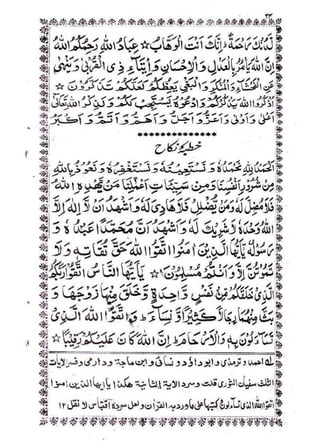 ۲۲
لَدُنْكَ رَحْمَةً ۚ اِنَّكَ اَنْتَ الْوَهَّابُ ☆ عِبَادَ اللهِ رَحِمَكُمُ اللهُ
اِنَّ اللهَ يَاْمُرُ بِالْعَدْلِ وَالْاِحْسَانِ وَاِيْتَآءِ ذِي الْقُرْبٰى وَيَنْهٰى
عَنِ الْفَحْشَآءِ وَالْمُنْكَرِ وَالْبَغْيِ يَعِظُكُمْ لَعَلَّكُمْ تَذَكَّرُوْنَ ☆
اُذْكُرُوا اللهَ يَذْكُرْكُمْ وَادْعُوْهُ يَسْتَجِبْ لَكُمْ وَلَذِكْرُ اللهِ تَعَالٰى
اَعْلٰى وَاَوْلٰى وَاَعَزُّ وَاَجَلُّ وَاَهَمُّ وَاَتَمُّ وَاَكْبَرُ
خطبۂ نکاح
اَلْحَمْدُ لِلّٰهِ نَحْمَدُهٗ وَنَسْتَعِيْنُهٗ وَنَسْتَغْفِرُهٗ وَنَعُوْذُ بِاللهِ
مِنْ شُرُوْرِ اَنْفُسِنَا وَمِنْ سَيِّئَاتِ اَعْمَالِنَا مَنْ يَّهْدِهِ اللهُ
فَلَا مُضِلَّ لَهٗ وَمَنْ يُّضْلِلْ فَلَا هَادِيَ لَهٗ وَاَشْهَدُ اَنْ لَّا اِلٰهَ اِلَّا
اللهُ وَحْدَهٗ لَا شَرِيْكَ لَهٗ وَاَشْهَدُ اَنَّ مُحَمَّدًا عَبْدُهٗ وَ
رَسُوْلُهٗ يٰٓاَيُّهَا الَّذِيْنَ اٰمَنُوا اتَّقُوا اللهَ حَقَّ تُقَاتِهٖ وَلَا
تَمُوْتُنَّ اِلَّا وَاَنْتُمْ مُّسْلِمُوْنَ ☆ يٰٓاَيُّهَا النَّاسُ اتَّقُوْا رَبَّكُمُ
الَّذِيْ خَلَقَكُمْ مِّنْ نَّفْسٍ وَّاحِدَةٍ وَّخَلَقَ مِنْهَا زَوْجَهَا وَ
بَثَّ مِنْهُمَا رِجَالًا كَثِيْرًا وَّنِسَآءً ۚ وَاتَّقُوا اللهَ الَّذِيْ
تَسَآءَلُوْنَ بِهٖ وَالْاَرْحَامَ ؕ اِنَّ اللهَ كَانَ عَلَيْكُمْ رَقِيْبًا ☆
احمد و ترمذی و ابوداؤد و نسائی و ابن ماجة و دارمی و فسر الآیات
الثلث سفیان الثوری قلت وسرد الایة الثانیة هکذا یا ایها الذین اٰمنوا
اتقوا الله الذی تساءلون